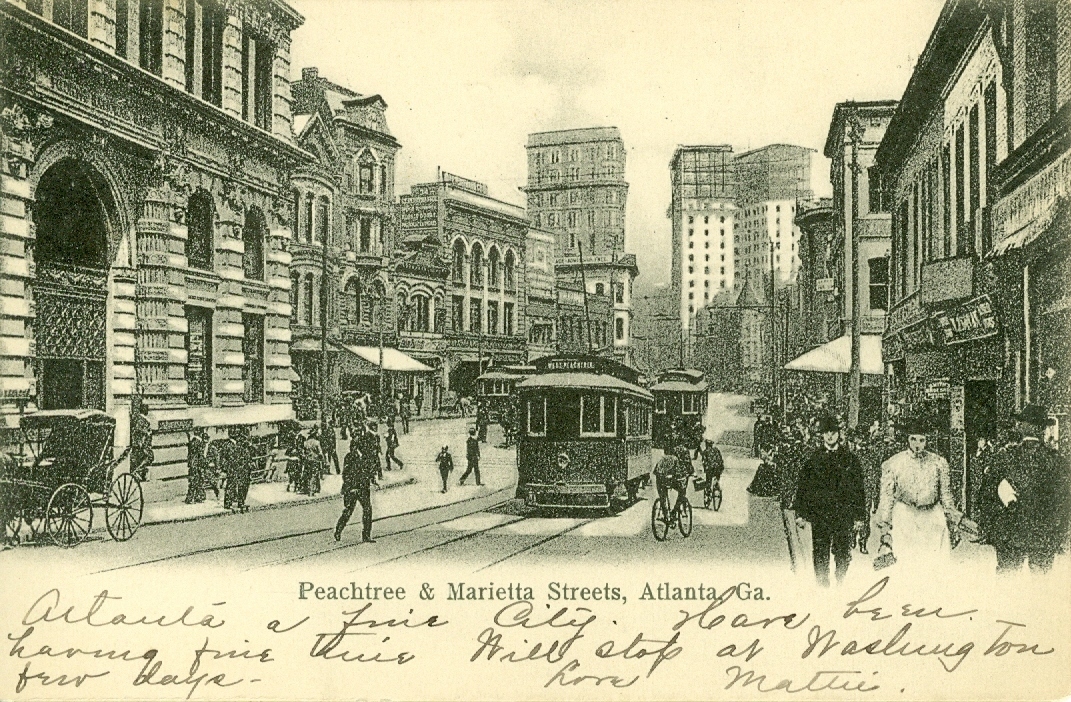 Peachtree & Marietta Streets, Atlanta, Ga.
Atlanta a fine City. Have been
having fine time Will stop at Washington
few days-
Love Mattie.